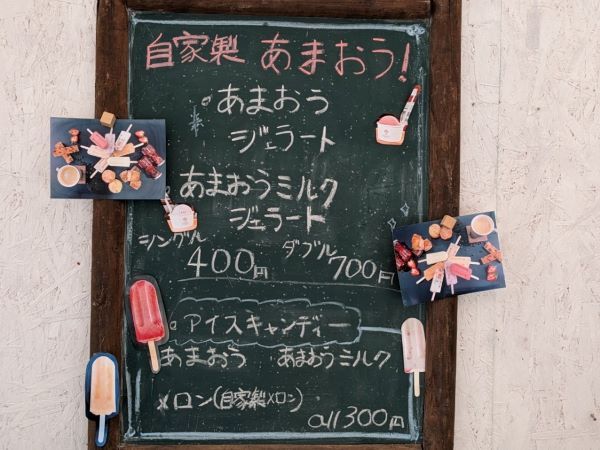 自家製 あまおう!
。あまおう
ジェラート
。あまおうミルク
ジェラート
シングル 400円 ダブル 700円
。アイスキャンディー
あまおう あまおうミルク
メロン(自家製メロン)
all 300円